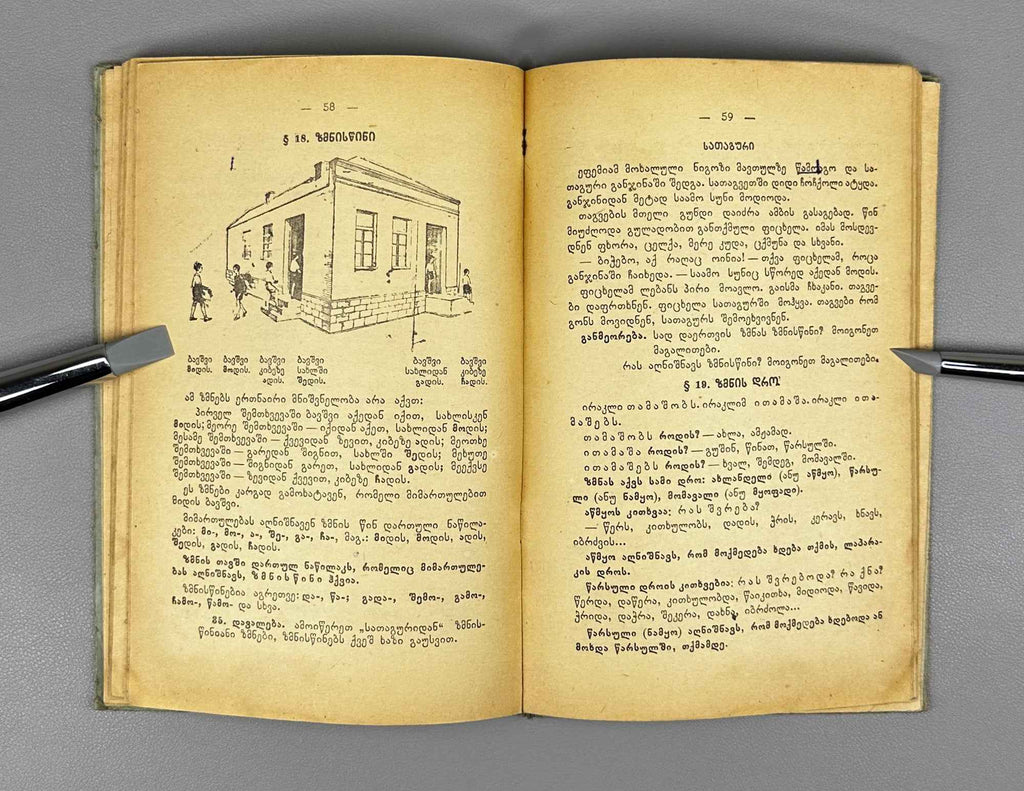 — 58 —
§ 18. ზმნისწინი
ბავშვი ბავშვი ბავშვი ბავშვი ბავშვი ბავშვი
მიდის. მოდის. კიბეზე სახლში სახლიდან კიბეზე
ადის. შედის. გადის. ჩადის.
ამ ზმნებს ერთნაირი მნიშვნელობა არა აქვთ:
პირველ შემთხვევაში ბავშვი აქედან იქით, სახლისკენ
მიდის; მეორე შემთხვევაში — იქიდან აქეთ, სახლიდან მოდის;
მესამე შემთხვევაში — ქვევიდან ზევით, კიბეზე ადის; მეოთხე
შემთხვევაში — გარედან შიგნით, სახლში შედის; მეხუთე
შემთხვევაში — შიგნიდან გარეთ, სახლიდან გადის; მეექვსე
შემთხვევაში — ზევიდან ქვევით, კიბეზე ჩადის.
ეს ზმნები კარგად გამოხატავენ, რომელი მიმართულებით
მიდის ბავშვი.
მიმართულებას აღნიშნავენ ზმნის წინ დართული ნაწილა-
კები: მი-, მო-, ა-, შე-, გა-, ჩა-, მაგ.: მიდის, მოდის, ადის,
შედის, გადის, ჩადის.
ზმნის თავში დართულ ნაწილაკს, რომელიც მიმართულე-
ბას აღნიშნავს, ზმნისწინი ჰქვია.
ზმნისწინებია აგრეთვე: და-, წა-; გადა-, შემო-, გამო-,
ჩამო-, წამო- და სხვა.
25. დავალება. ამოიწერეთ „სათაგურიდან“ ზმნის-
წინიანი ზმნები, ზმნისწინებს ქვეშ ხაზი გაუსვით.
— 59 —
სათაგური
ეფემიამ მოხალული ნიგოზი მავთულზე წამოაგო და სა-
თაგური განჯინაში შედგა. სათაგვეთში დიდი ჩოჩქოლი ატყდა.
განჯინიდან მეტად საამო სუნი მოდიოდა.
თაგვების მთელი გუნდი დაიძრა ამბის გასაგებად. წინ
მიუძღოდა გულადობით განთქმული ფიცხელა. იმას მოსდევ-
დნენ ფხორა, ცელქა, მერე კუდა, ცქმუნა და სხვანი.
— ბიჭებო, აქ რაღაც ოინია! — თქვა ფიცხელამ, როცა
განჯინაში ჩაიხედა. — საამო სუნიც სწორედ აქედან მოდის.
ფიცხელამ ლებანს პირი მოავლო. გაისმა ჩხაკანი. თაგვე-
ბი დაფრთხნენ. ფიცხელა სათაგურში მოჰყვა. თაგვები რომ
გონს მოვიდნენ, სათაგურს შემოეხვივნენ.
განმეორება. სად დაერთვის ზმნას ზმნისწინი? მოიგონეთ
მაგალითები.
რას აღნიშნავს ზმნისწინი? მოიგონეთ მაგალითები.
§ 19. ზმნის დრო
ირაკლი თამაშობს. ირაკლიმ ითამაშა. ირაკლი ითა-
მაშებს.
თამაშობს როდის? — ახლა, ამჟამად.
ითამაშა როდის? — გუშინ, წინათ, წარსულში.
ითამაშებს როდის? — ხვალ, შემდეგ, მომავალში.
ზმნას აქვს სამი დრო: ახლანდელი (ანუ აწმყო), წარსუ-
ლი (ანუ ნამყო), მომავალი (ანუ მყოფადი).
აწმყოს კითხვაა: რას შვრება?
— წერს, კითხულობს, დადის, ჭრის, კერავს, ხნავს,
იბრძვის...
აწმყო აღნიშნავს, რომ მოქმედება ხდება თქმის, ლაპარა-
კის დროს.
წარსული დროის კითხვებია: რას შვრებოდა? რა ქნა?
წერდა, დაწერა, კითხულობდა, წაიკითხა, მიდიოდა, წავიდა,
ჭრიდა, დაჭრა, შეკერა, დახნა, იბრძოლა...
წარსული (ნამყო) აღნიშნავს, რომ მოქმედება ხდებოდა ან
მოხდა წარსულში, თქმამდე.